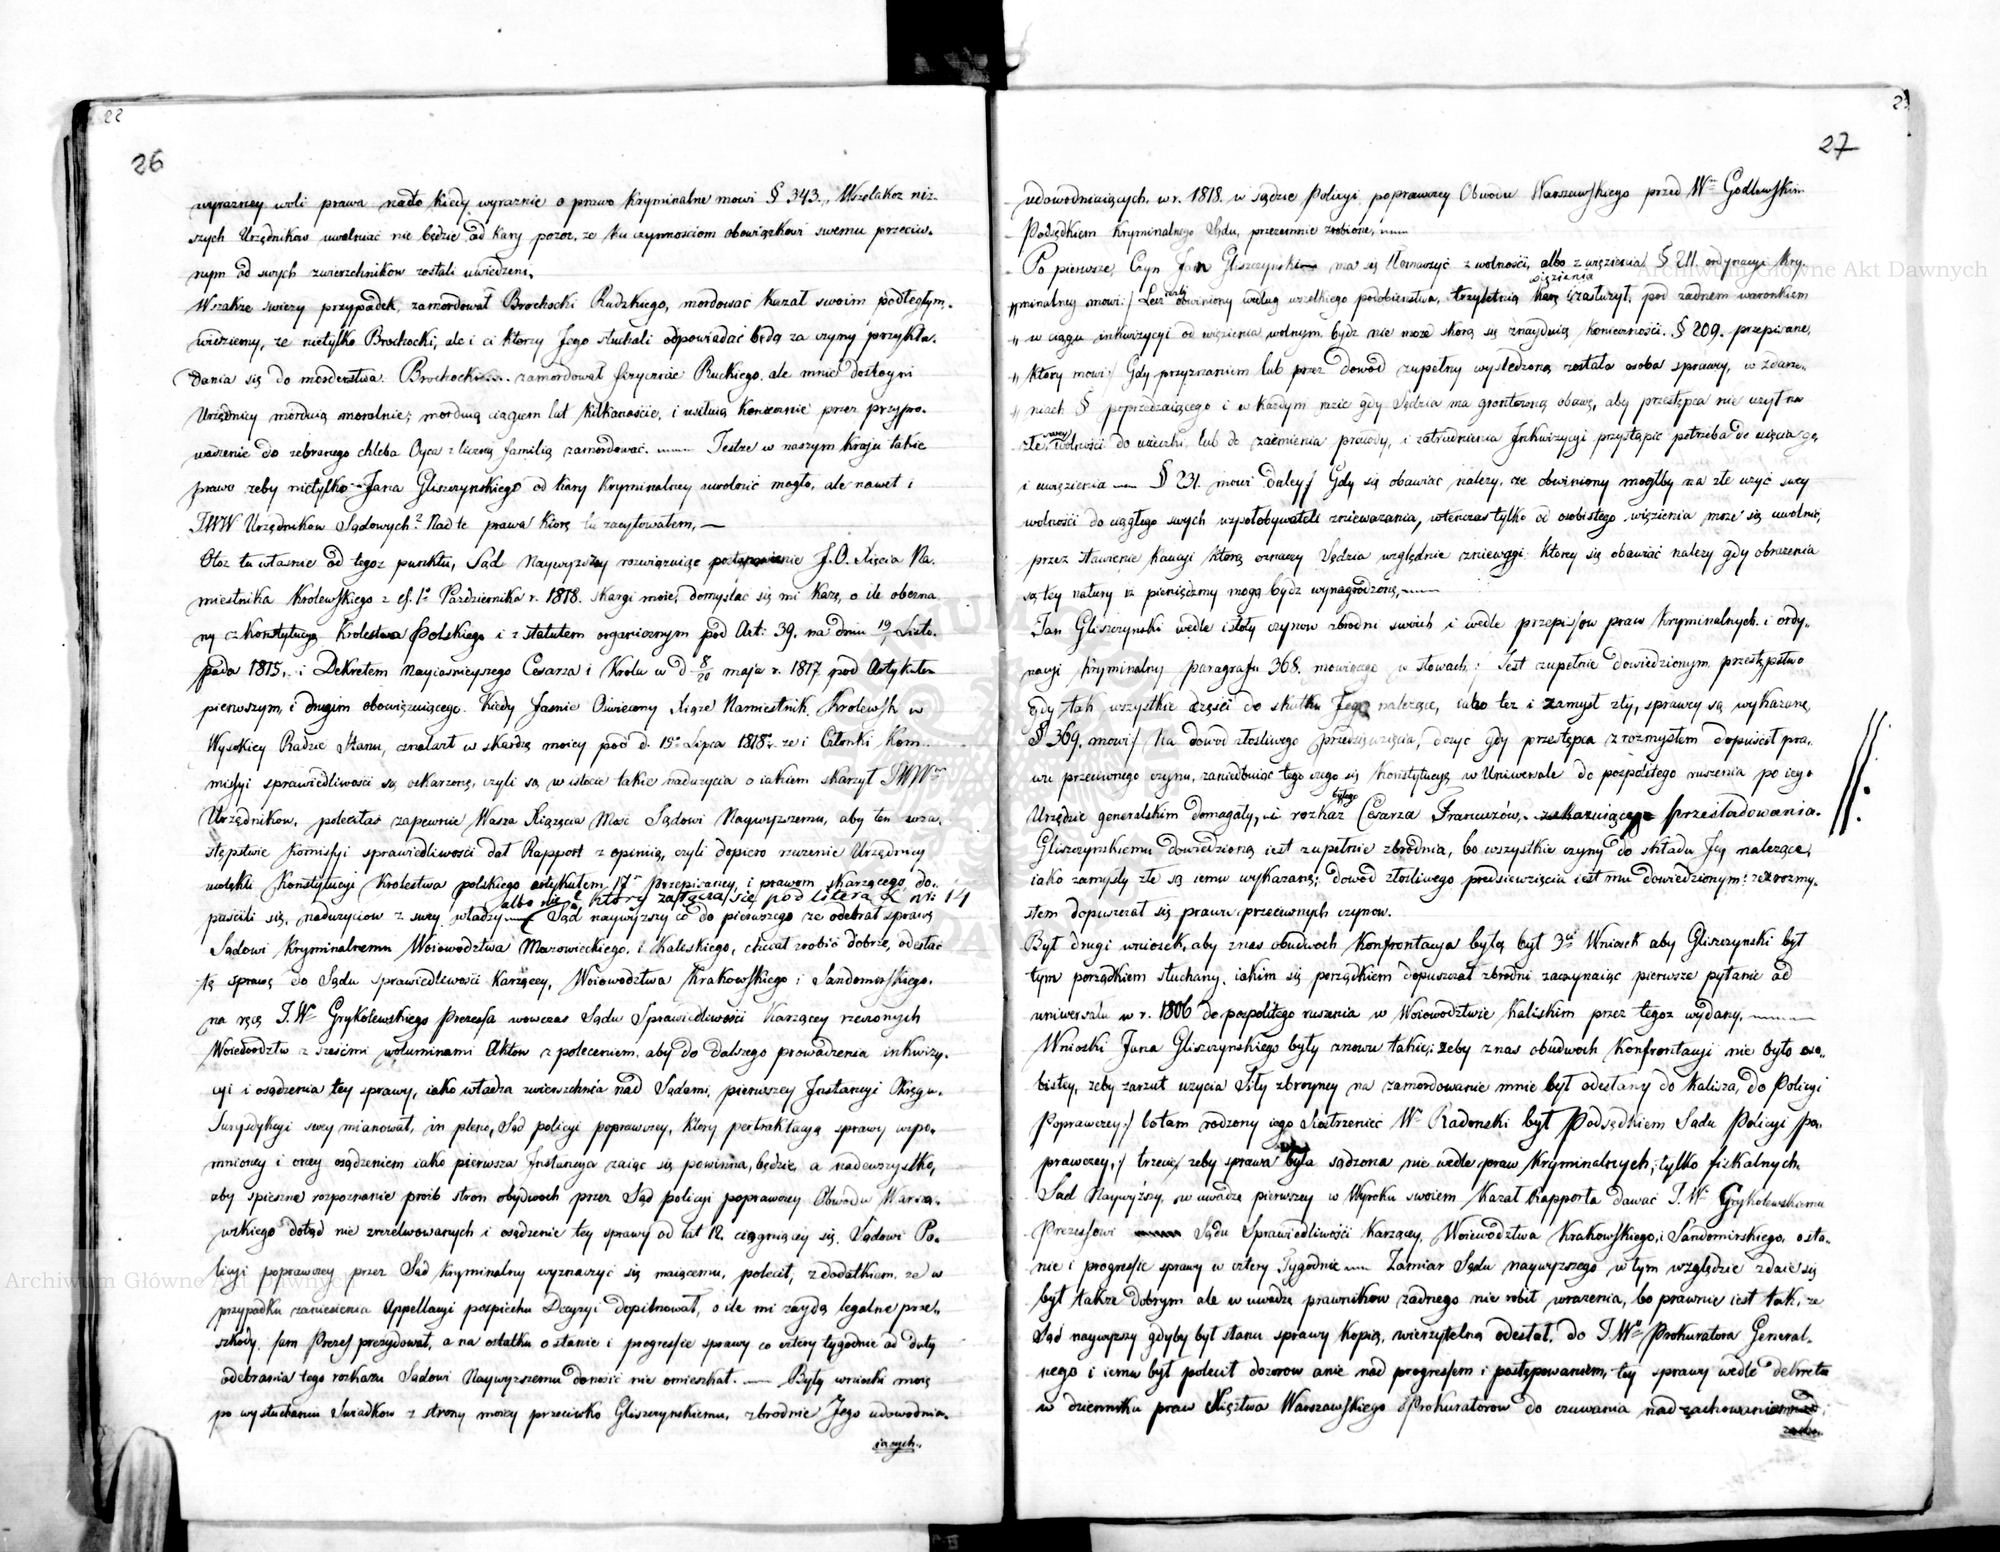 22
26
wyrazney woli prawa nadto kiedy wyraznie o prawo kryminalne mowi § 343., Wszelakoz niz-
szych Urzędnikow uwalniać nie będzie od kary pozor, ze ku czynnosciom obowiązkowi swemu przeciw-
nym od swych zwierzchnikow zostali uwiedzeni,
Wszakze swiezy przypadek, zamordował Brochocki Rudzkiego, mordować kazał swoim podległym.
widziemy, ze nietylko Brochocki, ale i ci ktorzy Jego słuchali odpowiadać będą za czyny przykła-
dania się do morderstwa. Brochocki zamordował fizycznie Ruckiego, ale mnie dostoyni
Urzędnicy morduią moralnie; morduią ciągiem lat kilkanaście, i usiłuią koniecznie przez przypro-
wadzenie do zebranego chleba Oyca z liczną familią zamordować. Jestze w naszym kraju takie
prawo zeby nietylko Jana Gliszczynskiego od kary kryminalney uwolnić mogło, ale nawet i
JWW Urzędnikow Sądowych? Nad te prawa ktore tu zacytowałem, —
Otoz tu własnie od tegoz punktu, Sąd Naywyzszy rozwiązuiąc postanowienie J.O. Xięcia Na-
miestnika Krolewskiego z d. 1o Pazdziernika r. 1818. skargi moie, domyslać się mi karze, o ile obezna
ny z Konstytucyą Krolestwa Polskiego i z statutem organicznym pod Art: 39. na dniu 19 Listo-
pada 1815., i Dekretem Nayiasnieyszego Cesarza i Krola w d 8/20 maja r. 1817 pod Artykułem
pierwszym, i drugim obowiązuiącego. Kiedy Jasnie Oswiecony Xiąze Namiestnik Krolewsk w
Wysokiey Radzie Stanu, znalazł w skardze moiey pod d. 15o Lipca 1818r. ze i Członki Kom-
missyi sprawiedliwosci są oskarzone, czyli są w istocie takie naduzycia o iakiem skarzył JWW
Urzędnikow, poleciłas zapewnie Wasza Xiązęcia Mosć Sądowi Naywyzszemu, aby ten w za-
stępstwie Komissyi sprawiedliwosci dał Rapport z opinią, czyli dopiero rzeczenie Urzędnicy
uwlekli Konstytucyi Krolestwa polskiego artykułem 17m przepisaney, i prawom skarzącego, do-
albo nie, który załącza się pod literą K nr: 14
puscili się, naduzyciow z swey władzy Sąd naywyzszy co do pierwszego ze odebrał sprawę
Sądowi Kryminalnemu Woiewodztwa Mazowieckiego, i Kaliskiego, chciał zrobić dobrze, odesłać
tę sprawę do Sądu sprawiedliwosci Karzącey, Woiewodztwa Krakowskiego i Sandomirskiego,
na ręce J.W. Grykolewskiego Prezesa wowczas Sądu Sprawiedliwosci Karzącey rzeczonych
Woiewodztw z szescmi woluminami Aktow z poleceniem, aby do dalszego prowadzenia inkwizy-
cyi i osądzenia tey sprawy, iako władza zwierzchnia nad Sądami, pierwszey Instancyi Okręgu
Jurysdykcyi swey mianował, in pleno, Sąd policyi poprawczey, ktory pertraktacyą sprawy wspo-
mnioney i oney osądzeniem iako pierwsza Instancya zaiąc się powinna, będzie, a nadewszystko,
aby spieszne rozpoznanie prosb stron obydwoch przez Sąd policyi poprawczey Obwodu Warsza-
wskiego dotąd nie zrezolwowanych i osądzenie tey sprawy od lat 12. ciągnącey się Sądowi Po-
licyi poprawczey przez Sąd Kryminalny wyznaczyć się maiącemu, polecił, z dodatkiem, ze w
przypadku zaniesienia Appellacyi pospiechu Decyzyi dopilnował, o ile mi zaydą legalne prze-
szkody, sam Prezes prezydował, a na ostatku o stanie i progressie sprawy co cztery tygodnie od daty
odebrania tego rozkazu Sądowi Naywyzszemu donosić nie omieszkał. — Były wnioski moie
po wysłuchaniu Swiadkow z strony moiey przeciwko Gliszczynskiemu, zbrodnie Jego udowodnia-
iących.
23
27
udowodniaiących, w r. 1818. w sądzie Policyi poprawczey Obwodu Warszawskiego przed Wm Godlewskim
Podsędkiem Kryminalnego Sądu, przezemnie zrobione,
Po pierwsze, Czyn Jan Gliszczynski ma się tłomaczyć z wolności, albo z więzienia § 211. ordynacyi kry-
więzienia
minalney mowi:/ Lecz obwiniony według wszelkiego podobienstwa, trzyletnią karę zasłuzył, pod zadnem warunkiem
„ w ciągu inkwizycyi od więzienia wolnym bydz nie moze skoro się znayduią konieczności. § 209. przepisane,
„ ktory mowi/ Gdy przyznaniem lub przez dowod zupełny wysledzona została osoba sprawcy, w zdarze-
„ niach § poprzedzaiącego i w kazdym razie gdy Sędzia ma gruntowną obawę, aby przestępca nie uzył na
swey
złe wolności do ucieczki, lub do zaćmienia prawdy, i zatrudnienia Inkwizycyi przystąpić potrzeba do uięcia go
i uwięzienia — § 231. mowi daley/ Gdy się obawiać nalezy, ze obwiniony mogłby na złe uzyć swey
wolności do ciągłego swych wspołobywateli zniewazania, wtenczas tylko od osobistego więzienia moze się uwolnić,
przez stawienie kaucyi ktorą oznaczy Sędzia względnie zniewagi ktorey się obawiać nalezy gdy obrazenia
są tey natury iz pieniędzmy mogą bydz wynagrodzone,
Jan Gliszczynski wedle istoty czynow zbrodni swoich i wedle przepisow praw kryminalnych i ordy-
nacyi kryminalny paragrafu 368. mowiącego w słowach:/ Jest zupełnie dowiedzionym przestępstwo
gdy tak wszystkie części do skutku Jego nalezące, iako tez i zamysł zły, sprawcy są wykazane,
§ 369. mowi/ Na dowod złosliwego przedsięwzięcia, dosyć gdy przestępca z rozmysłem dopuscił pra-
wu przeciwnego czynu, zaniedbuiąc tego czego się konstytucyą w Uniwersale do pospolitego ruszenia po iego
byłego
Urzędzie generalskim domagały, i rozkaz Cesarza Francuzow, zakazuiącego przesladowania.
Gliszczynskiemu dowiedzioną iest zupełnie zbrodnia, bo wszystkie czyny do składu Jey nalezące,
iako zamysły złe są iemu wykazane; dowod złosliwego przedsiewzięcia iest mu dowiedzionym: ze z rozmy-
słem dopuszczał się prawu przeciwnych czynow.
Był drugi wniosek, aby z nas obudwoch konfrontacya była, był 3ci Wniosek aby Gliszczynski był
tym porządkiem słuchany, iakim się porządkiem dopuszczał zbrodni zaczynaiąc pierwsze pytanie od
uniwersału w r. 1806 do pospolitego ruszenia w Woiewodztwie Kaliskim przez tegoz wydany,
Wnioski Jana Gliszczynskiego były znowu takie; zeby z nas obudwoch Konfrontacyi nie było oso-
bistey, zeby zarzut uzycia Siły zbroyney na zamordowanie mnie był odesłany do Kalisza, do Policyi
Poprawczey:/ bo tam rodzony iego Siostrzeniec W. Radonski był Podsędkiem Sądu Policyi po-
prawczey,/ trzecie, zeby sprawa była sądzona nie wedle praw kryminalnych, tylko fiskalnych.
Sąd Naywyższy, w uwadze pierwszey w Wyroku swoiem kazał Rapporta dawać J.W. Grykolewskiemu
Prezesowi Sądu Sprawiedliwości Karzącey, Woiewodztwa Krakowskiego, i Sandomirskiego, o sta-
nie i progressie sprawy w cztery Tygodnie Zamiar Sądu naywyzszego w tym względzie zdaie się
był takze dobrym ale w uwadze prawnikow zadnego nie robił wrazenia, bo prawnie iest tak, ze
Sąd naywyzszy gdyby był stanu sprawy kopią, wierzytelną odesłał, do J.W. Prokuratora General-
nego i iemu był polecił dozorow anie nad progressem i postępowaniem, tey sprawy wedle dekretu
w dzienniku praw Xięztwa Warszawskiego Prokuratorow do czuwania nad zachowaniem